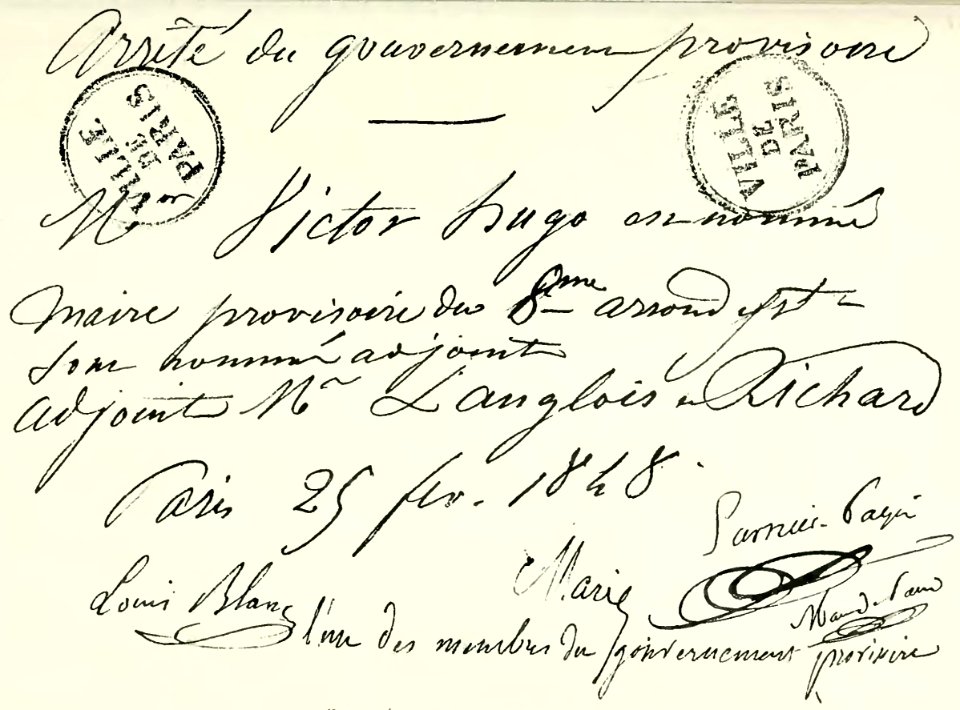 Arrêté du gouvernement provisoire
VILLE
DE
PARIS
VILLE
DE
PARIS
Victor Hugo est nommé
maire provisoire du 8me arrond
sont nommés adjoints
adjoints Mr Langlois et Richard
Paris 25 fev. 1848.
Garnier-Pagès
Louis Blanc
Marie
l'un des membres du gouvernement provisoire